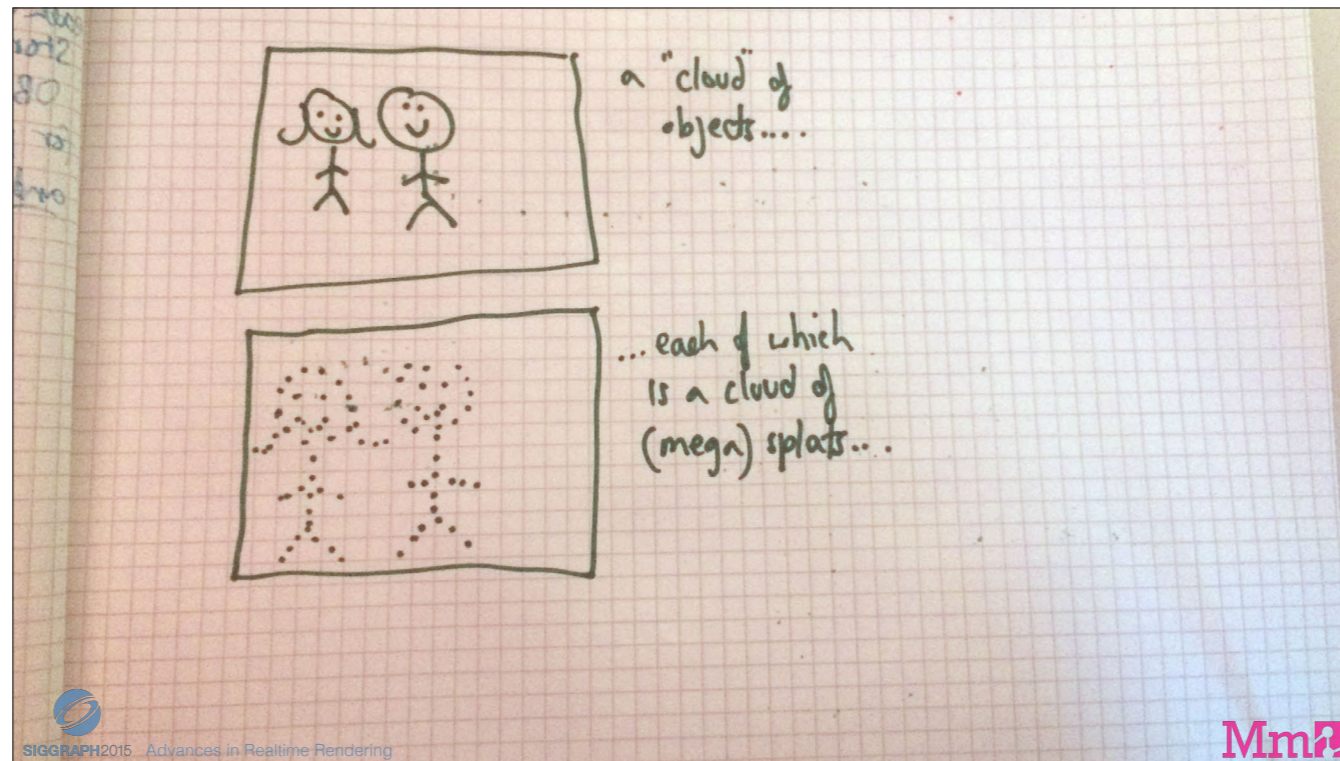 a "cloud" of
objects....
...each of which
is a cloud of
(mega) splats....
SIGGRAPH2015 Advances in Realtime Rendering